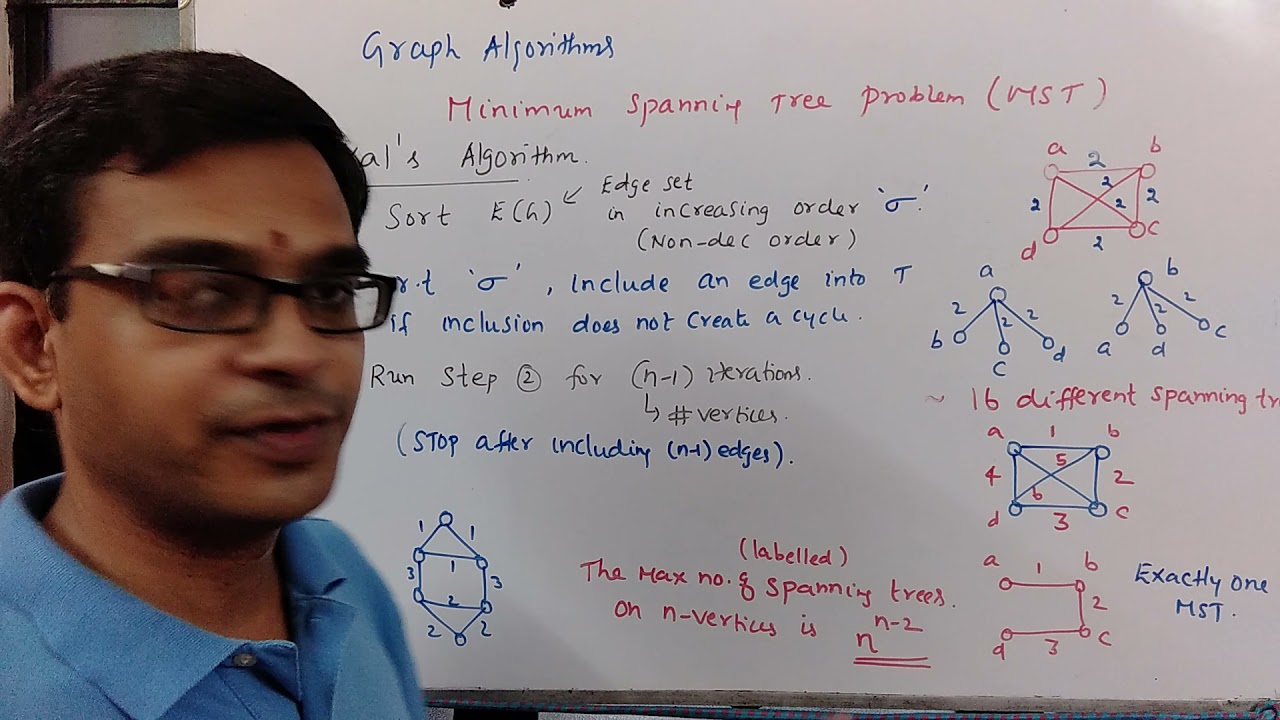 Graph Algorithms
Minimum Spanning Tree Problem (MST)
kal's Algorithm.
Sort E(G) ↙ Edge set
in increasing order 'σ'.
(Non-dec order)
r.t 'σ', Include an edge into T
if inclusion does not create a cycle.
Run Step ② for (n-1) iterations.
↳ # vertices.
(STOP after including (n-1) edges).
1 1
1
3 3
2
2 2
(labelled)
The Max no. of Spanning trees.
on n-vertices is n^{n-2}
a 2 b
2 2 2 2
d 2 c
a
2 2 2
b c d
b
2 2 2
a d c
~ 16 different spanning tr
a 1 b
4 5 2
6
d 3 c
a 1 b
2
d 3 c
Exactly one
MST.